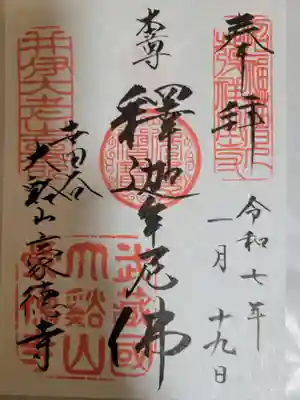 奉拝
令和七年
一月
十九日
本尊
釋迦牟尼佛
世田谷
大谿山豪德寺
武蔵國
大谿山